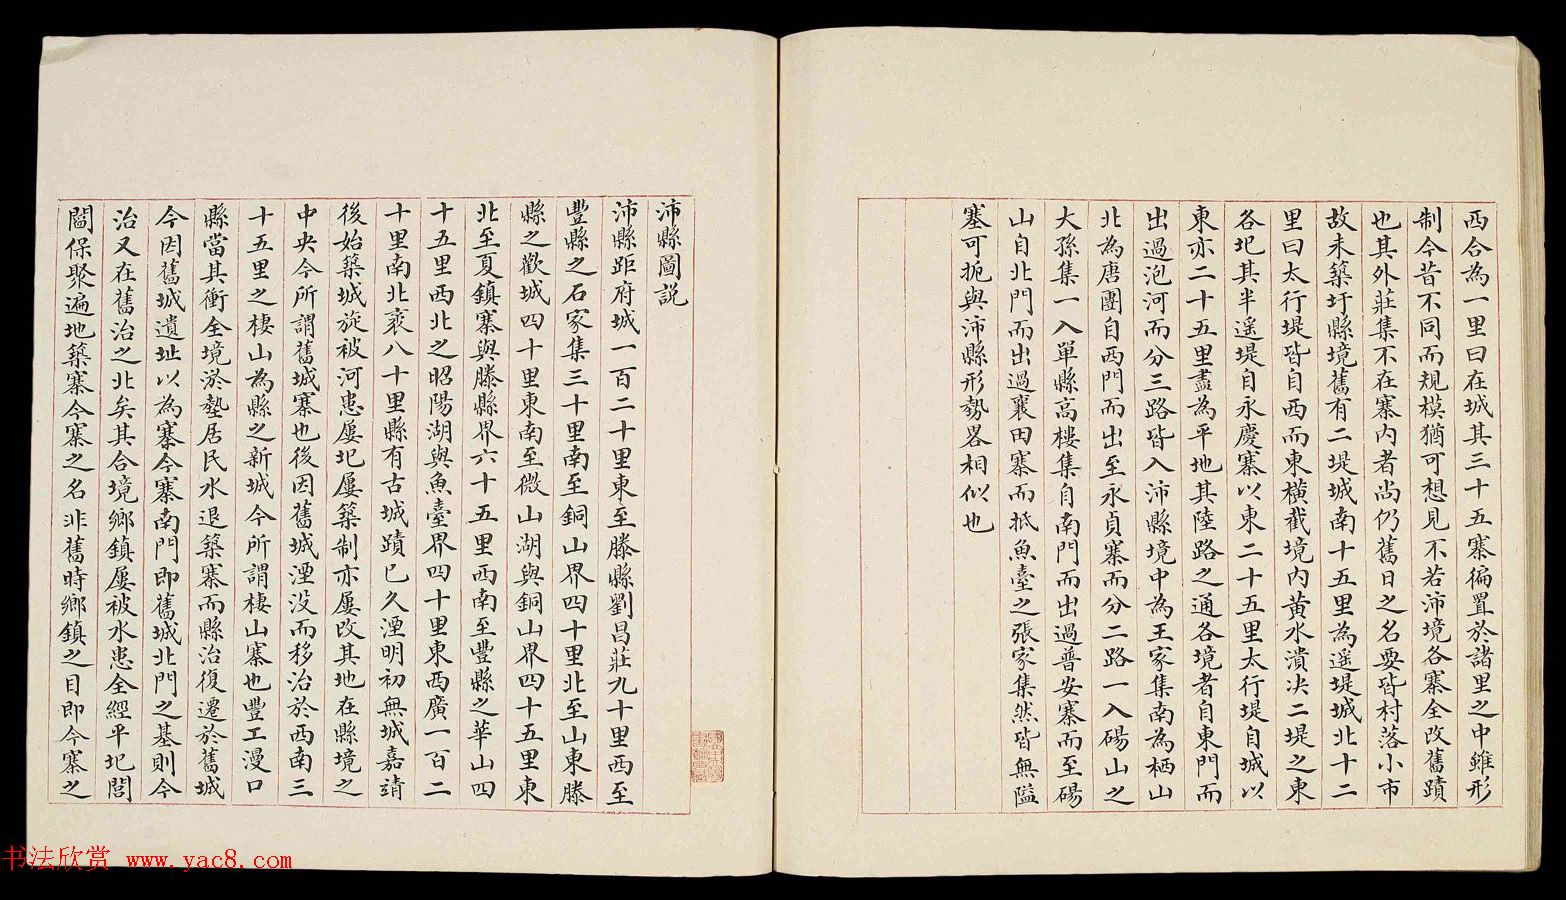 西合為一里曰在城其三十五寨徧置於諸里之中雖形
制今昔不同而規模猶可想見不若沛境各寨全改舊蹟
也其外莊集不在寨內者尚仍舊日之名要皆村落小市
故未築圩縣境舊有二堤城南十五里為遥堤城北十二
里曰太行堤皆自西而東橫截境內黃水潰决二堤之東
各圯其半遥堤自永慶寨以東二十五里太行堤自城以
東亦二十五里盡為平地其陸路之通各境者自東門而
出過泡河而分三路皆入沛縣境中為王家集南為栖山
北為唐團自西門而出至永貞寨而分二路一入碭山之
大孫集一入單縣高樓集自南門而出過普安寨而至碭
山自北門而出過襄田寨而抵魚臺之張家集然皆無隘
塞可扼與沛縣形勢畧相似也
沛縣圖説
沛縣距府城一百二十里東至滕縣劉昌莊九十里西至
豐縣之石家集三十里南至銅山界四十里北至山東滕
縣之歡城四十里東南至微山湖與銅山界四十五里東
北至夏鎮寨與滕縣界六十五里西南至豐縣之華山四
十五里西北之昭陽湖與魚臺界四十里東西廣一百二
十里南北袤八十里縣有古城蹟已久湮明初無城嘉靖
後始築城旋被河患屢圯屢築制亦屢改其地在縣境之
中央今所謂舊城寨也後因舊城湮没而移治於西南三
十五里之棲山為縣之新城今所謂棲山寨也豐工漫口
縣當其衝全境淤墊居民水退築寨而縣治復遷於舊城
今因舊城遺址以為寨今寨南門即舊城北門之基則今
治又在舊治之北矣其合境鄉鎮屢被水患全經平圯閭
閻保聚遍地築寨今寨之名非舊時鄉鎮之目即今寨之
书法欣赏 www.yac8.com